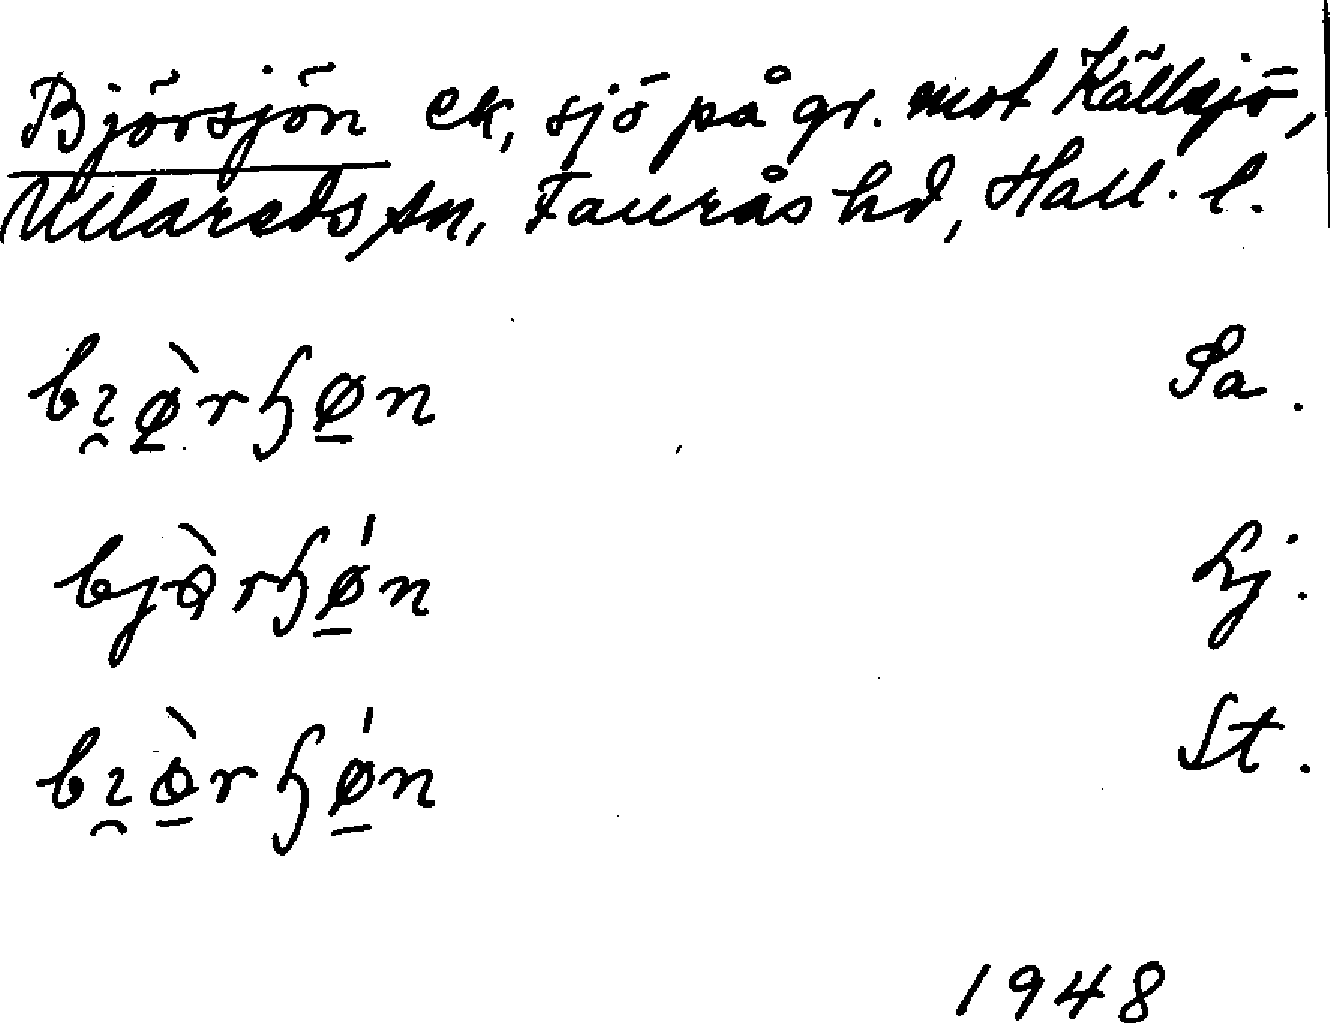 Björsjön ek, sjö på gr. mot Källsjö,
Ullareds sn, Faurås hd, Hall. l.
bı̯ø̠̀rɧø̠n Sa.
bjòrɧǿ̠n hj.
bı̯ò̠rɧǿ̠n St.
1948